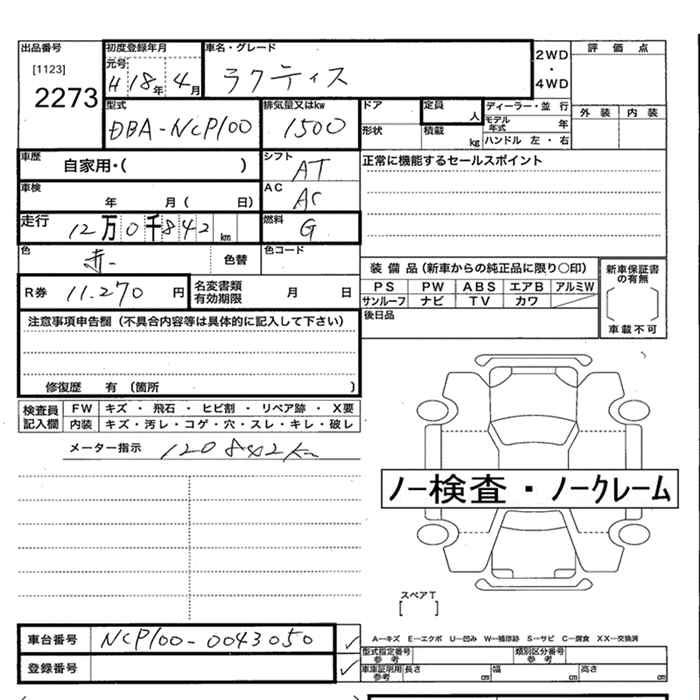 出品番号
[1123]
2273
初度登録年月
元号
H 18年 4月
車名・グレード
ラクティス
2WD
・
4WD
評価点
外装 内装
型式
DBA-NCP100
排気量又はkw
1500
ドア
形状
定員
人
積載
kg
ディーラー・並 行
モデル年式 年
ハンドル 左・右
車歴
自家用・( )
シフト
AT
正常に機能するセールスポイント
車検
年 月 ( 日)
AC
AC
走行
12万0千842 km
燃料
G
色
赤
色替
色コード
装備品(新車からの純正品に限り○印)
PS PW ABS エアB アルミW
サンルーフ ナビ TV カワ
新車保証書の有無
車載不可
R券 11.270 円
名変書類有効期限 月 日
後日品
注意事項申告欄 (不具合内容等は具体的に記入して下さい)
修復歴 有 (箇所 )
検査員記入欄
FW キズ ・ 飛石 ・ ヒビ割 ・ リペア跡 ・ X要
内装 キズ・汚レ・コゲ・穴・スレ・キレ・破レ
メーター指示 120842km
ノー検査・ノークレーム
スペアT
[ ]
車台番号 NCP100-0043050
登録番号
A–キズ E–エクボ U–凹み W–補修跡 S–サビ C–腐食 XX–交換済
型式指定番号参考
類別区分番号参考
車庫証明用参考 長さ cm 幅 cm 高さ cm